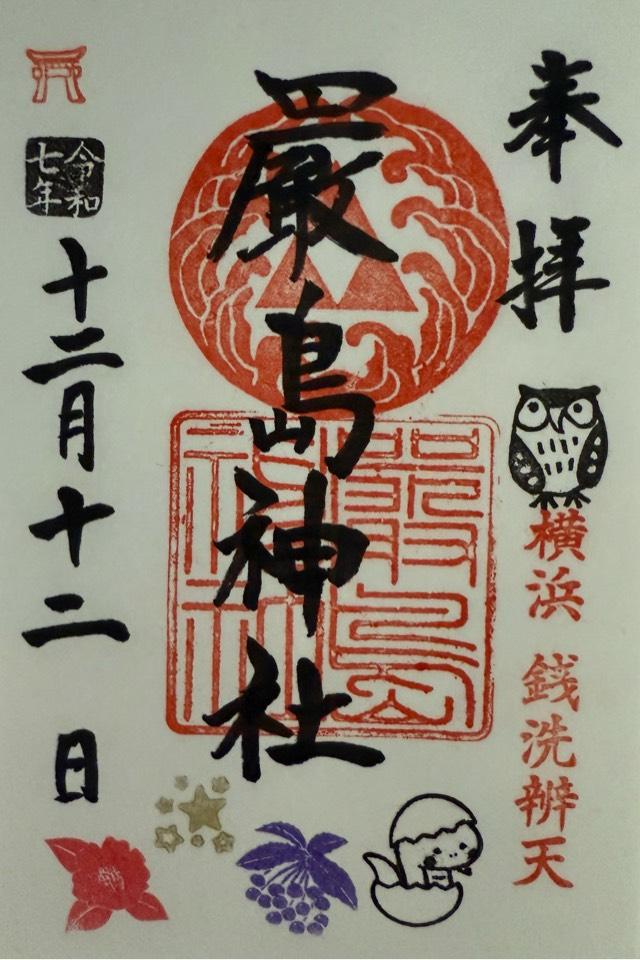 奉拝
横浜 銭洗辨天
嚴島神社
嚴島神社
令和七年
十二月十二日